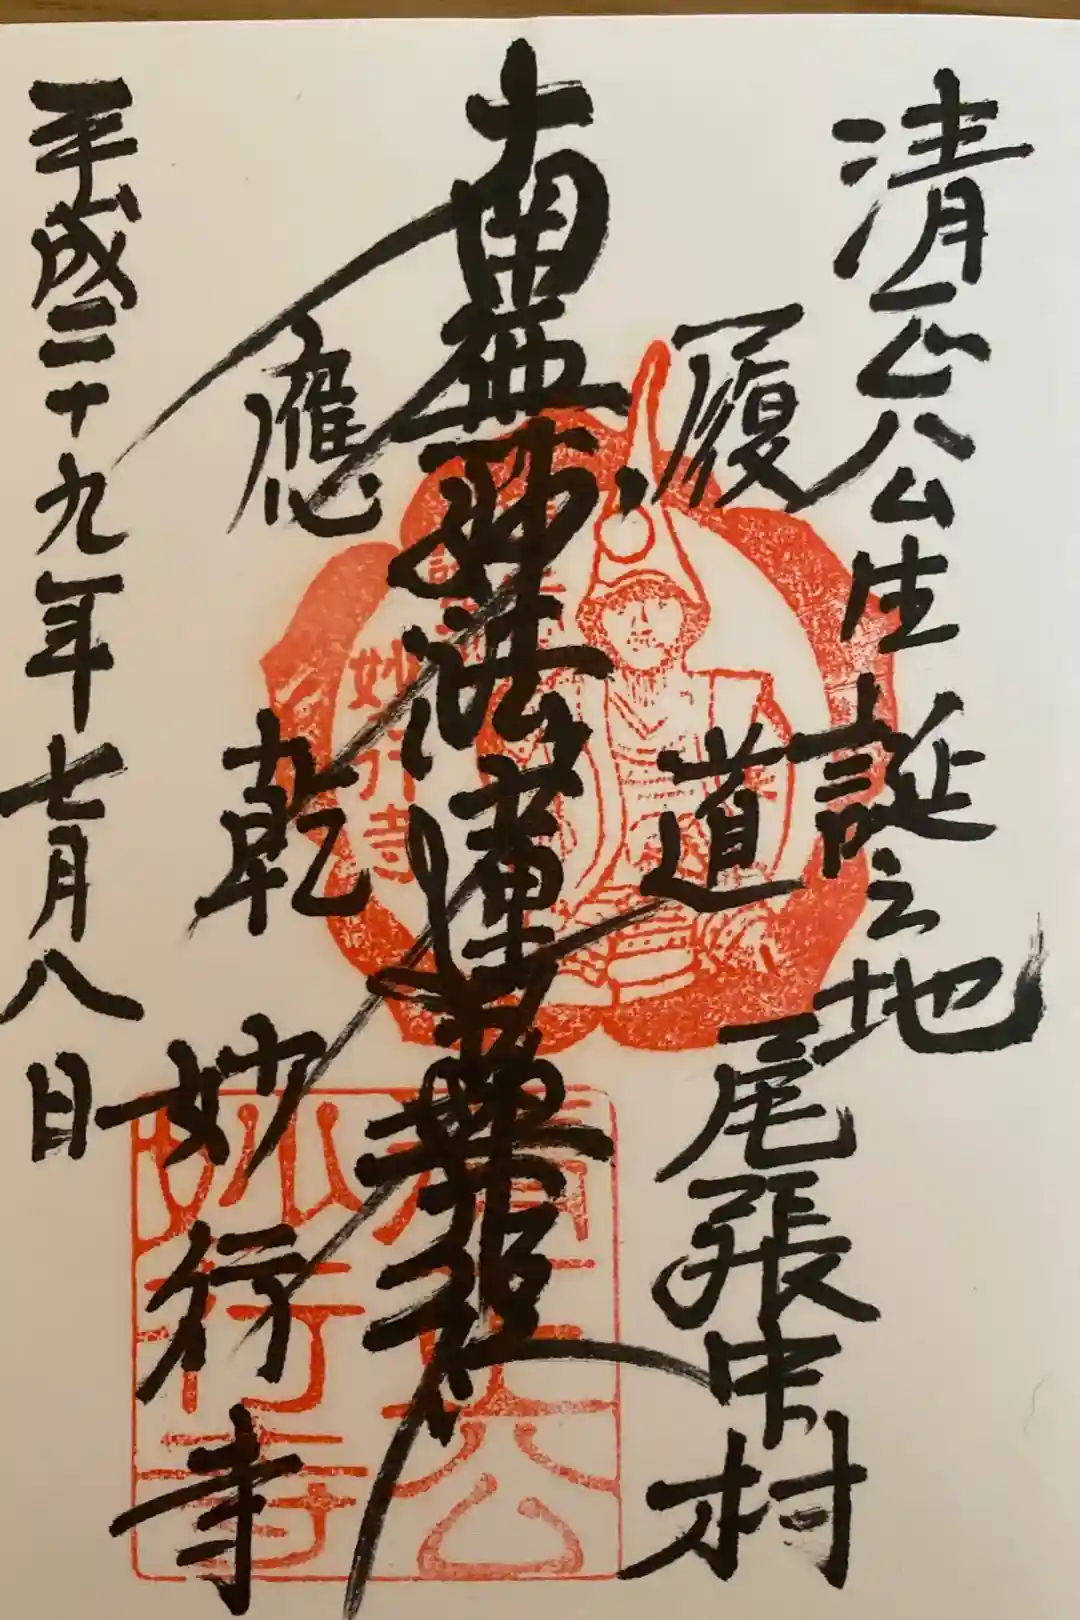 清正公生誕之地
履道應乾
尾張中村
南無妙法蓮華経
妙行寺
平成二十九年七月八日
妙行寺
清正公
妙行寺